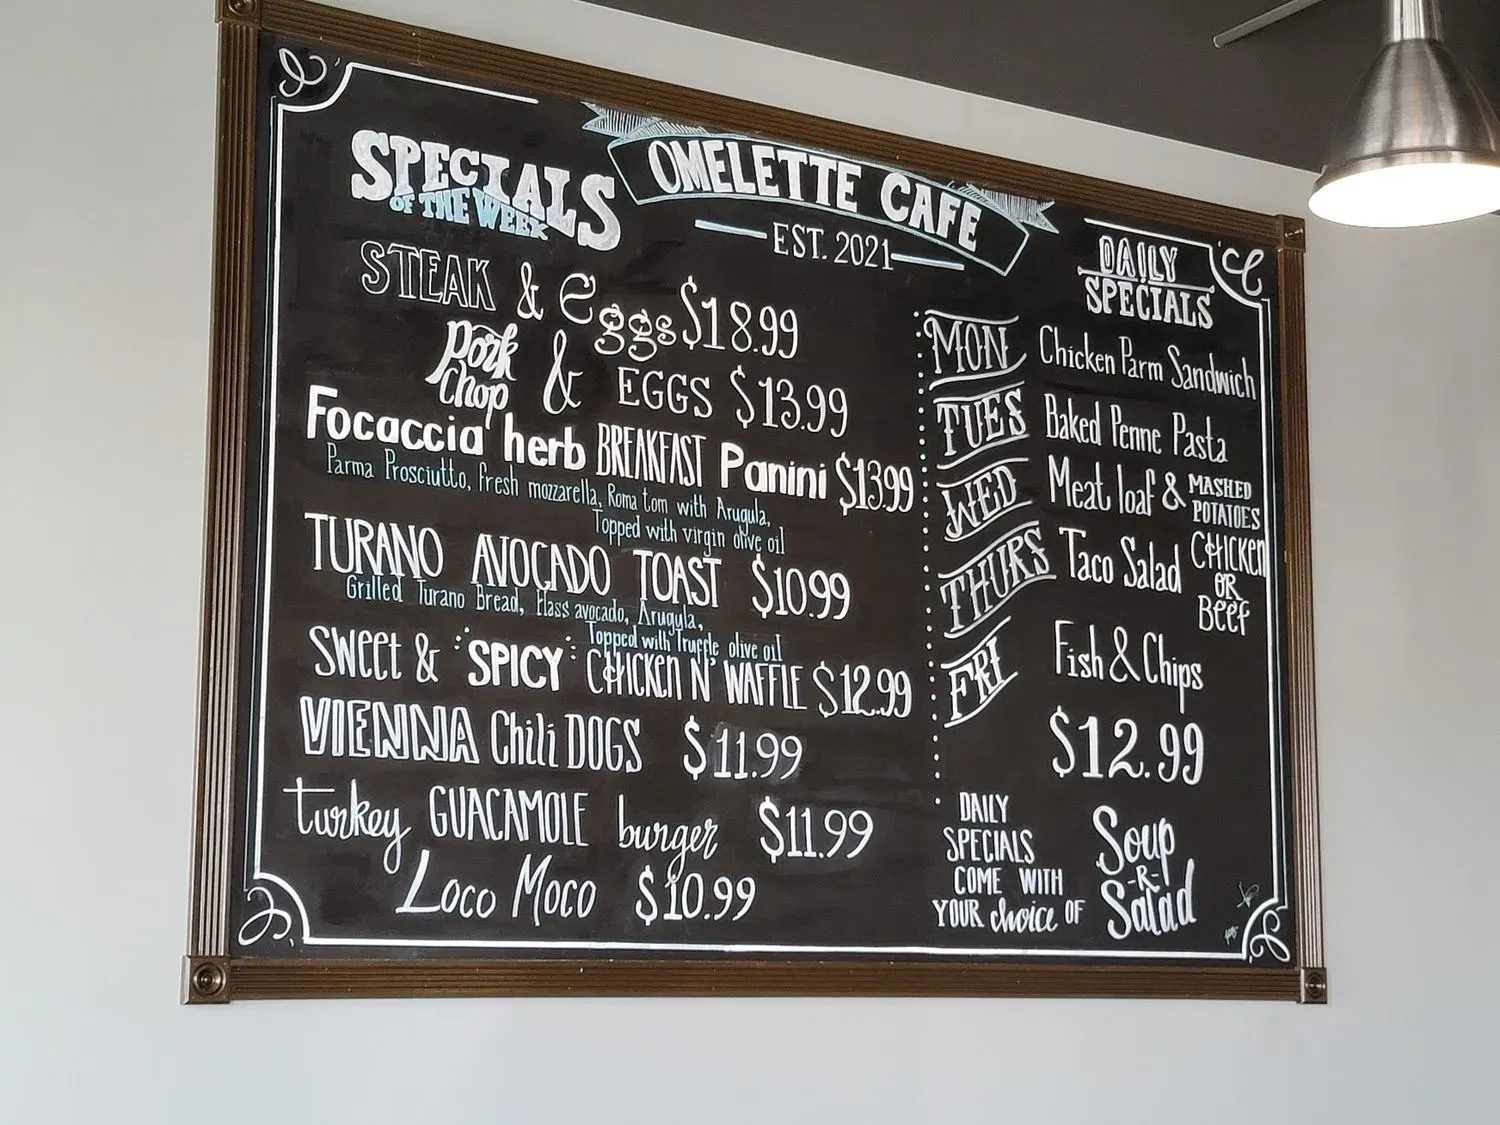 OMELETTE CAFE
EST. 2021
SPECIALS
OF THE WEEK
STEAK & Eggs $18.99
Pork Chop & EGGS $13.99
Focaccia herb BREAKFAST Panini $13.99
Parma Prosciutto, fresh mozzarella, Roma tom with Arugula,
Topped with virgin olive oil
TURANO AVOCADO TOAST $10.99
Grilled Turano Bread, Hass avocado, Arugula,
Topped with Truffle olive oil
SWEET & SPICY CHICKEN N' WAFFLE $12.99
VIENNA Chili DOGS $11.99
turkey GUACAMOLE burger $11.99
Loco Moco $10.99
DAILY
SPECIALS
MON Chicken Parm Sandwich
TUES Baked Penne Pasta
WED Meat loaf & MASHED POTATOES
THURS Taco Salad CHICKEN OR BEEF
FRI Fish & Chips
$12.99
DAILY
SPECIALS
COME WITH
YOUR choice OF
Soup
-R-
Salad